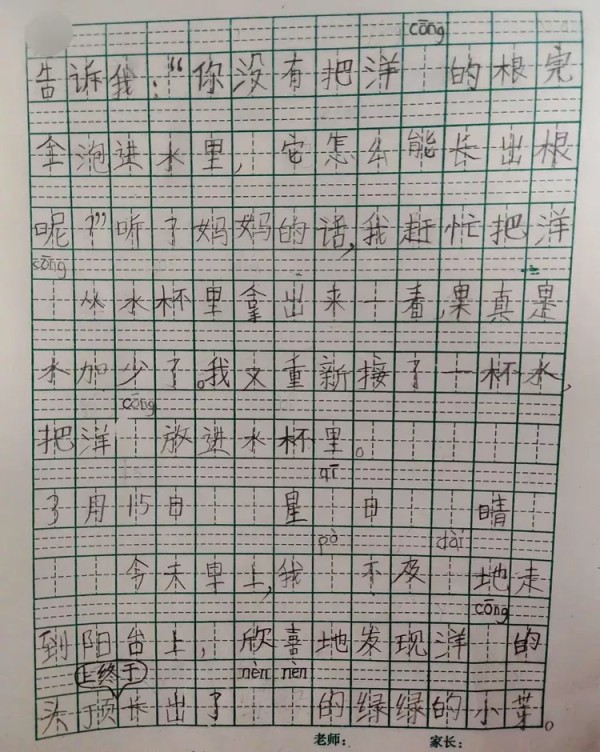 cōng
告诉我：“你没有把洋 的根完
全泡进水里，它怎么能长出根
呢？”听了妈妈的话，我赶忙把洋
cōng
从水杯里拿出来一看，果真是
水加少了。我又重新接了一杯水，
cōng
把洋 放进水杯里。
qī
3月15日 星 日 晴
pò dài
今天早上，我 不及 地走
cōng
到阳台上，欣喜地发现洋 的
上终于 nèn nèn
头顶长出了 的绿绿的小芽。
老师： 家长：